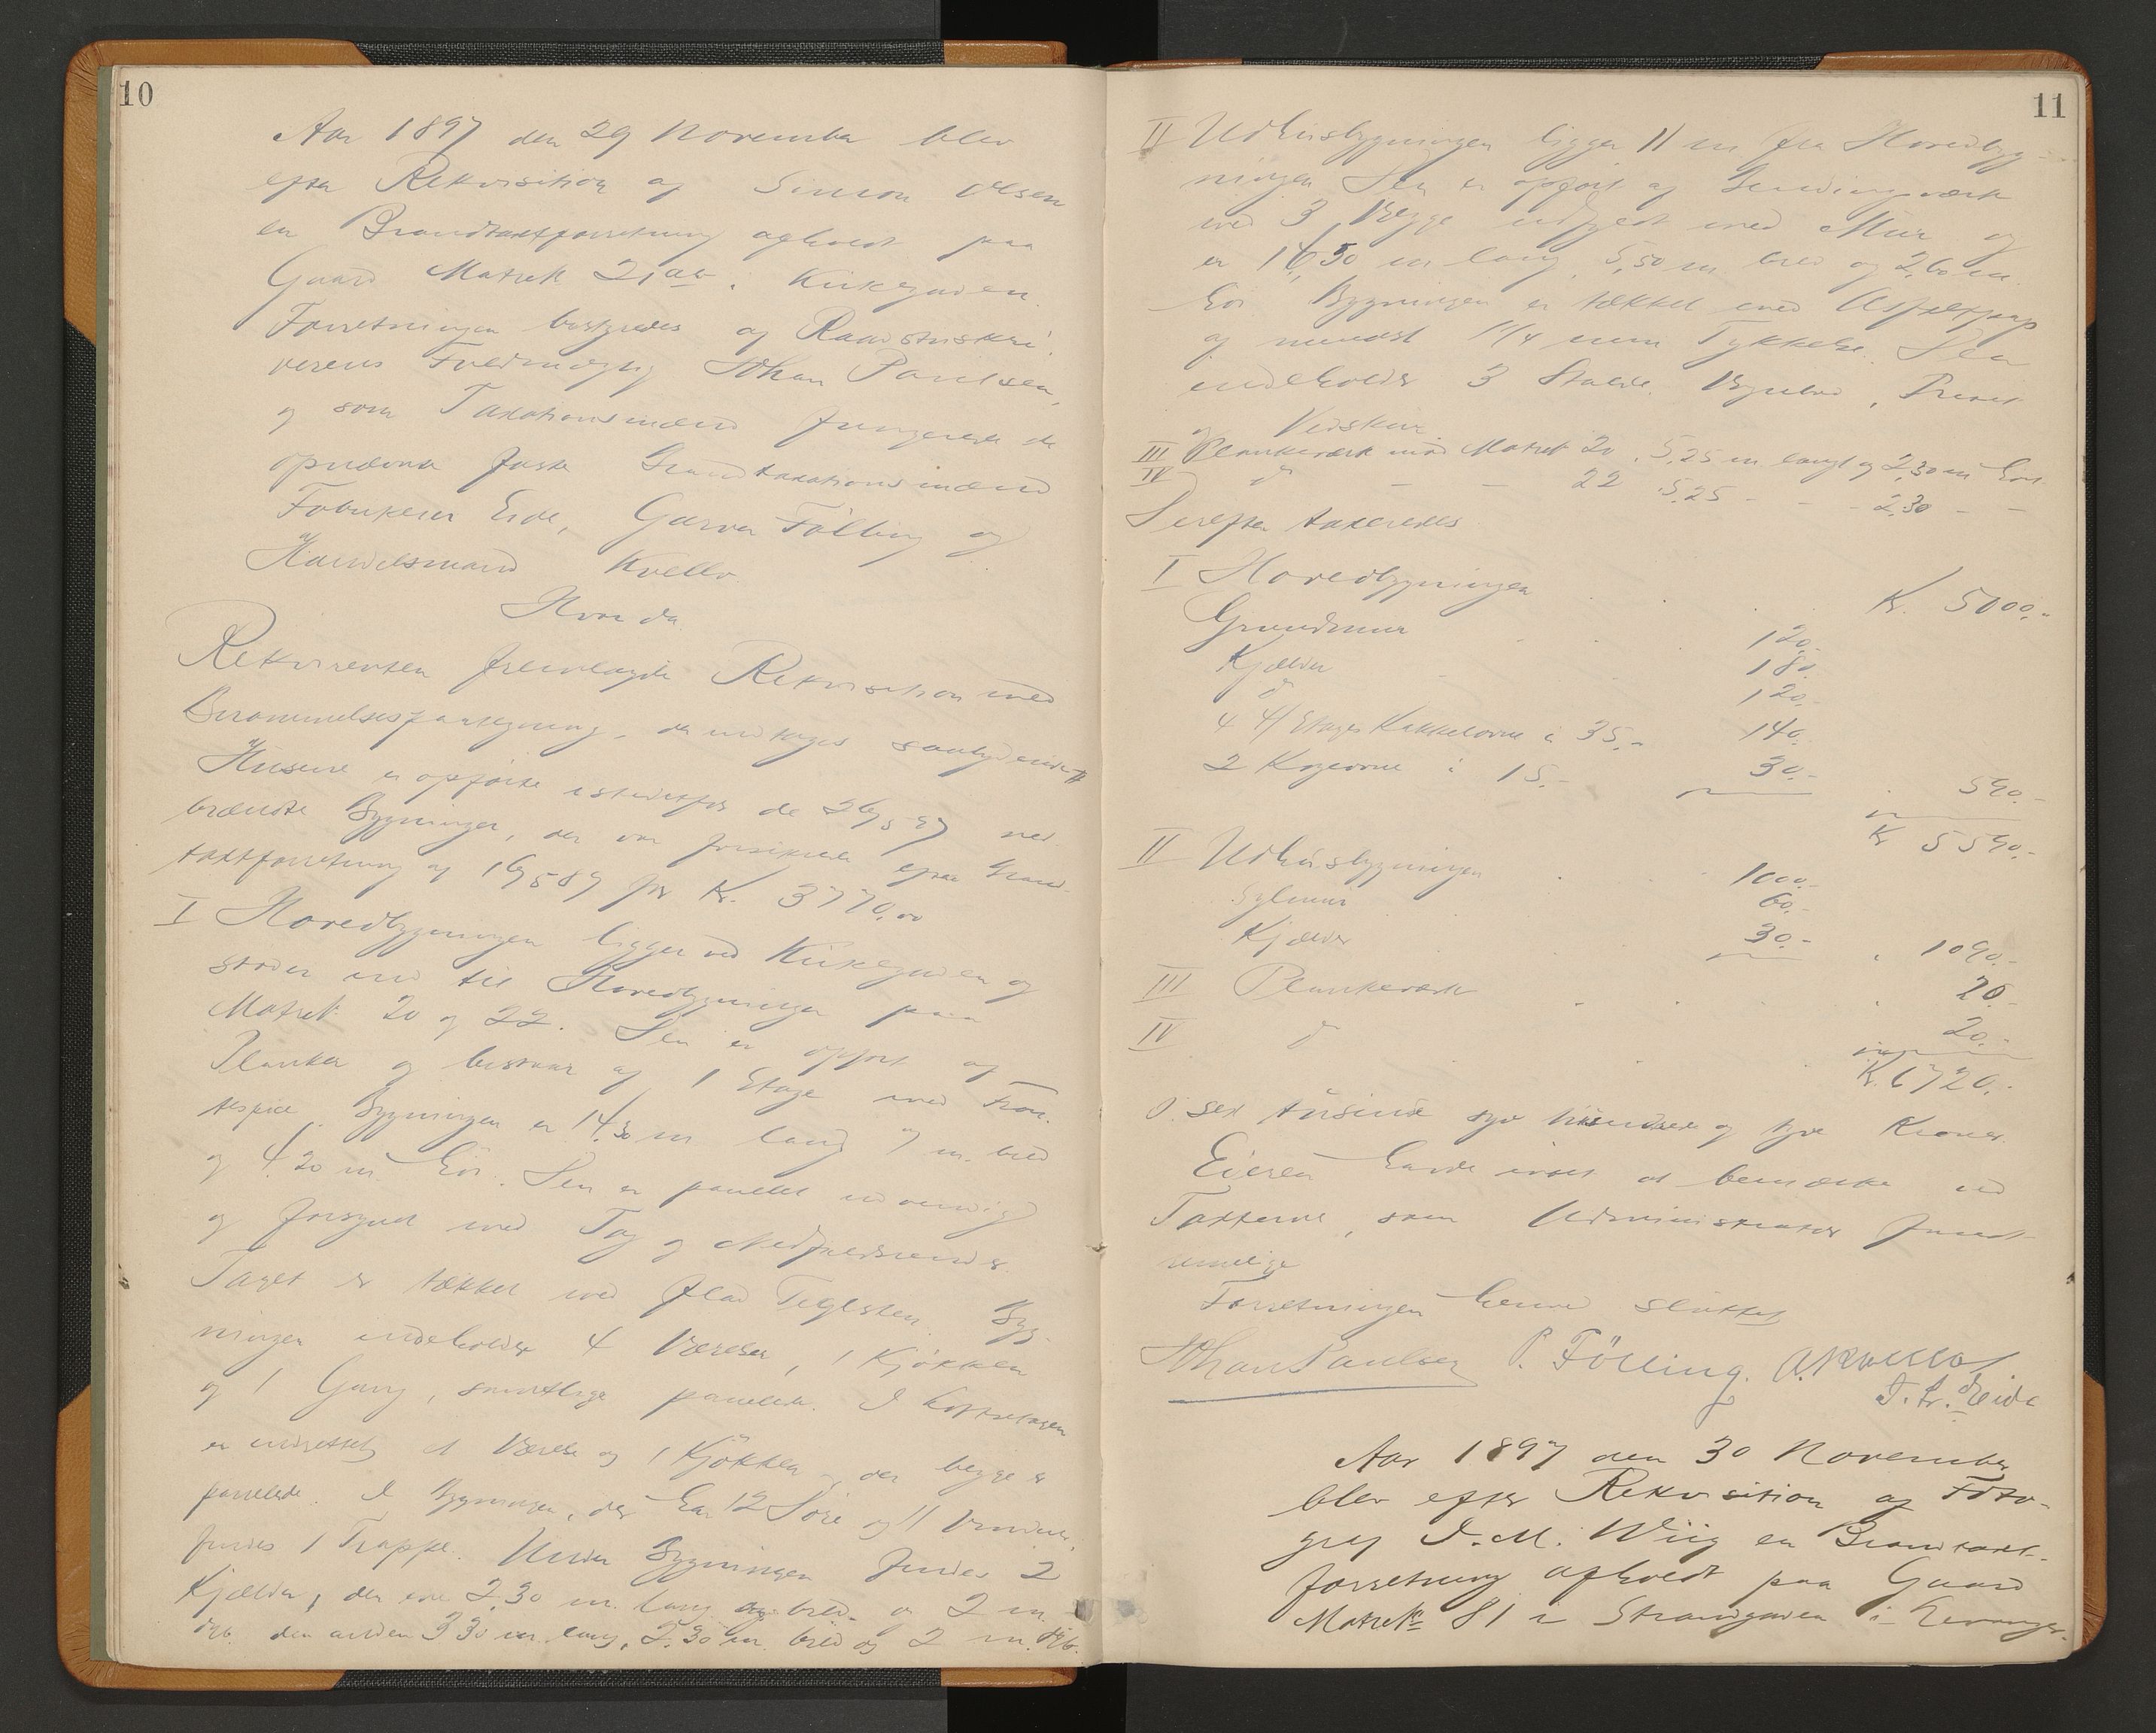 10
Aar 1897 den 29 November blev
efter Rekvisition af Simon Olsen
en Brandtaxtforretning afholdt paa
Gaard Matrk 21 i Kirkegaden.
Forretningen bestyredes af Raadstuskri-
verens Fuldmægtig Johan Paulsen,
og som Taxationsmænd fungerede de
opnævnte faste Brandtaxationsmænd
Eide, Garver Fölling og
Handelsmand Kvello.
Hvorda
Rekvirenten fremlagde Rekvisition med
Berammelsespaategning, der indtages saalydende
Husene er opførte istedetfor de 26/5 97 ned
brændte Bygninger, der var forsikrede efter Brand-
taxtforretning af 19/5 89 for Kr. 3770,00
I Hovedbygningen ligger ved Kirkegaden og
støder ind til Hovedbygninger paa
Matrk 20 og 22. Den er opført af
Planker og bestaar af 1 Etage med Fron-
tespice. Bygningen er 14.30 m lang 7 m. bred
og 4.20 m høi. Den er panelet udvendig
og forsynet med Tag og Nedfaldsrender
Taget er tækket med flad Teglsten. Byg-
ningen indeholder 4 Værelser, 1 Kjøkken
og 1 Gang, samtlige panelede. I
er indrettet et Værelse og 1 Kjökken, der begge er
panelede. I Bygningen, der har 12 Döre og 11 Vinduer,
findes 1 Trappe. Under Bygningen findes 2
Kjældere, den ene 2,30 m. lang og bred og 2 m.
dyb den anden 3 30 m. lang, 2.30 m. bred og 2 m. dyb.
11
II Udhusbygningen ligger 11 m fra Hovedbyg-
ningen Den er opført af Bindingsværk
med 3 Vægge udfyldt med Mur og
er 16,50 m lang, 5,50 m. bred og 2,60 m.
høi Bygningen er tækket med Asfaltpap
af mindst 1 1/4 mm Tykkelse. Den
indeholder 3 Stalde, , Privet
og Vedskur
III Plankeværk mod Matrk 20, 5,25 m langt og 2,30 m høit
IV do - - 22 5,25 - - 2.30 - -
Derefter taxeredes
I Hovedbygningen Kr. 5000.-
Grundmur 120.-
Kjælder 180.
do 120.
4 4/Etages Kakkelovne à 35.- 140.
2 Kogeovne à 15.- 30.-
590.-
Kr 5590.-
II Udhusbygningen 1000.-
Sylmur 60.-
Kjælder 30.- 1090.-
III Plankeværk 20.-
IV do 20.-
Kr. 6720.-
sex tusinde syv hundrede og tyve Kroner.
Eieren havde intet at bemærke ved
Taxterne, som Administrator fandt
rimelige
Forretningen hermed sluttet
Johan Paulsen P. Fölling. A. Kvello
J. Kr. Eide
Aar 1897 den 30 November
blev efter Rekvisition af Foto-
graf I. M. Wiig en Brandtaxt-
forretning afholdt paa Gaard
Matrk 81 i Strandgaden i Levanger.